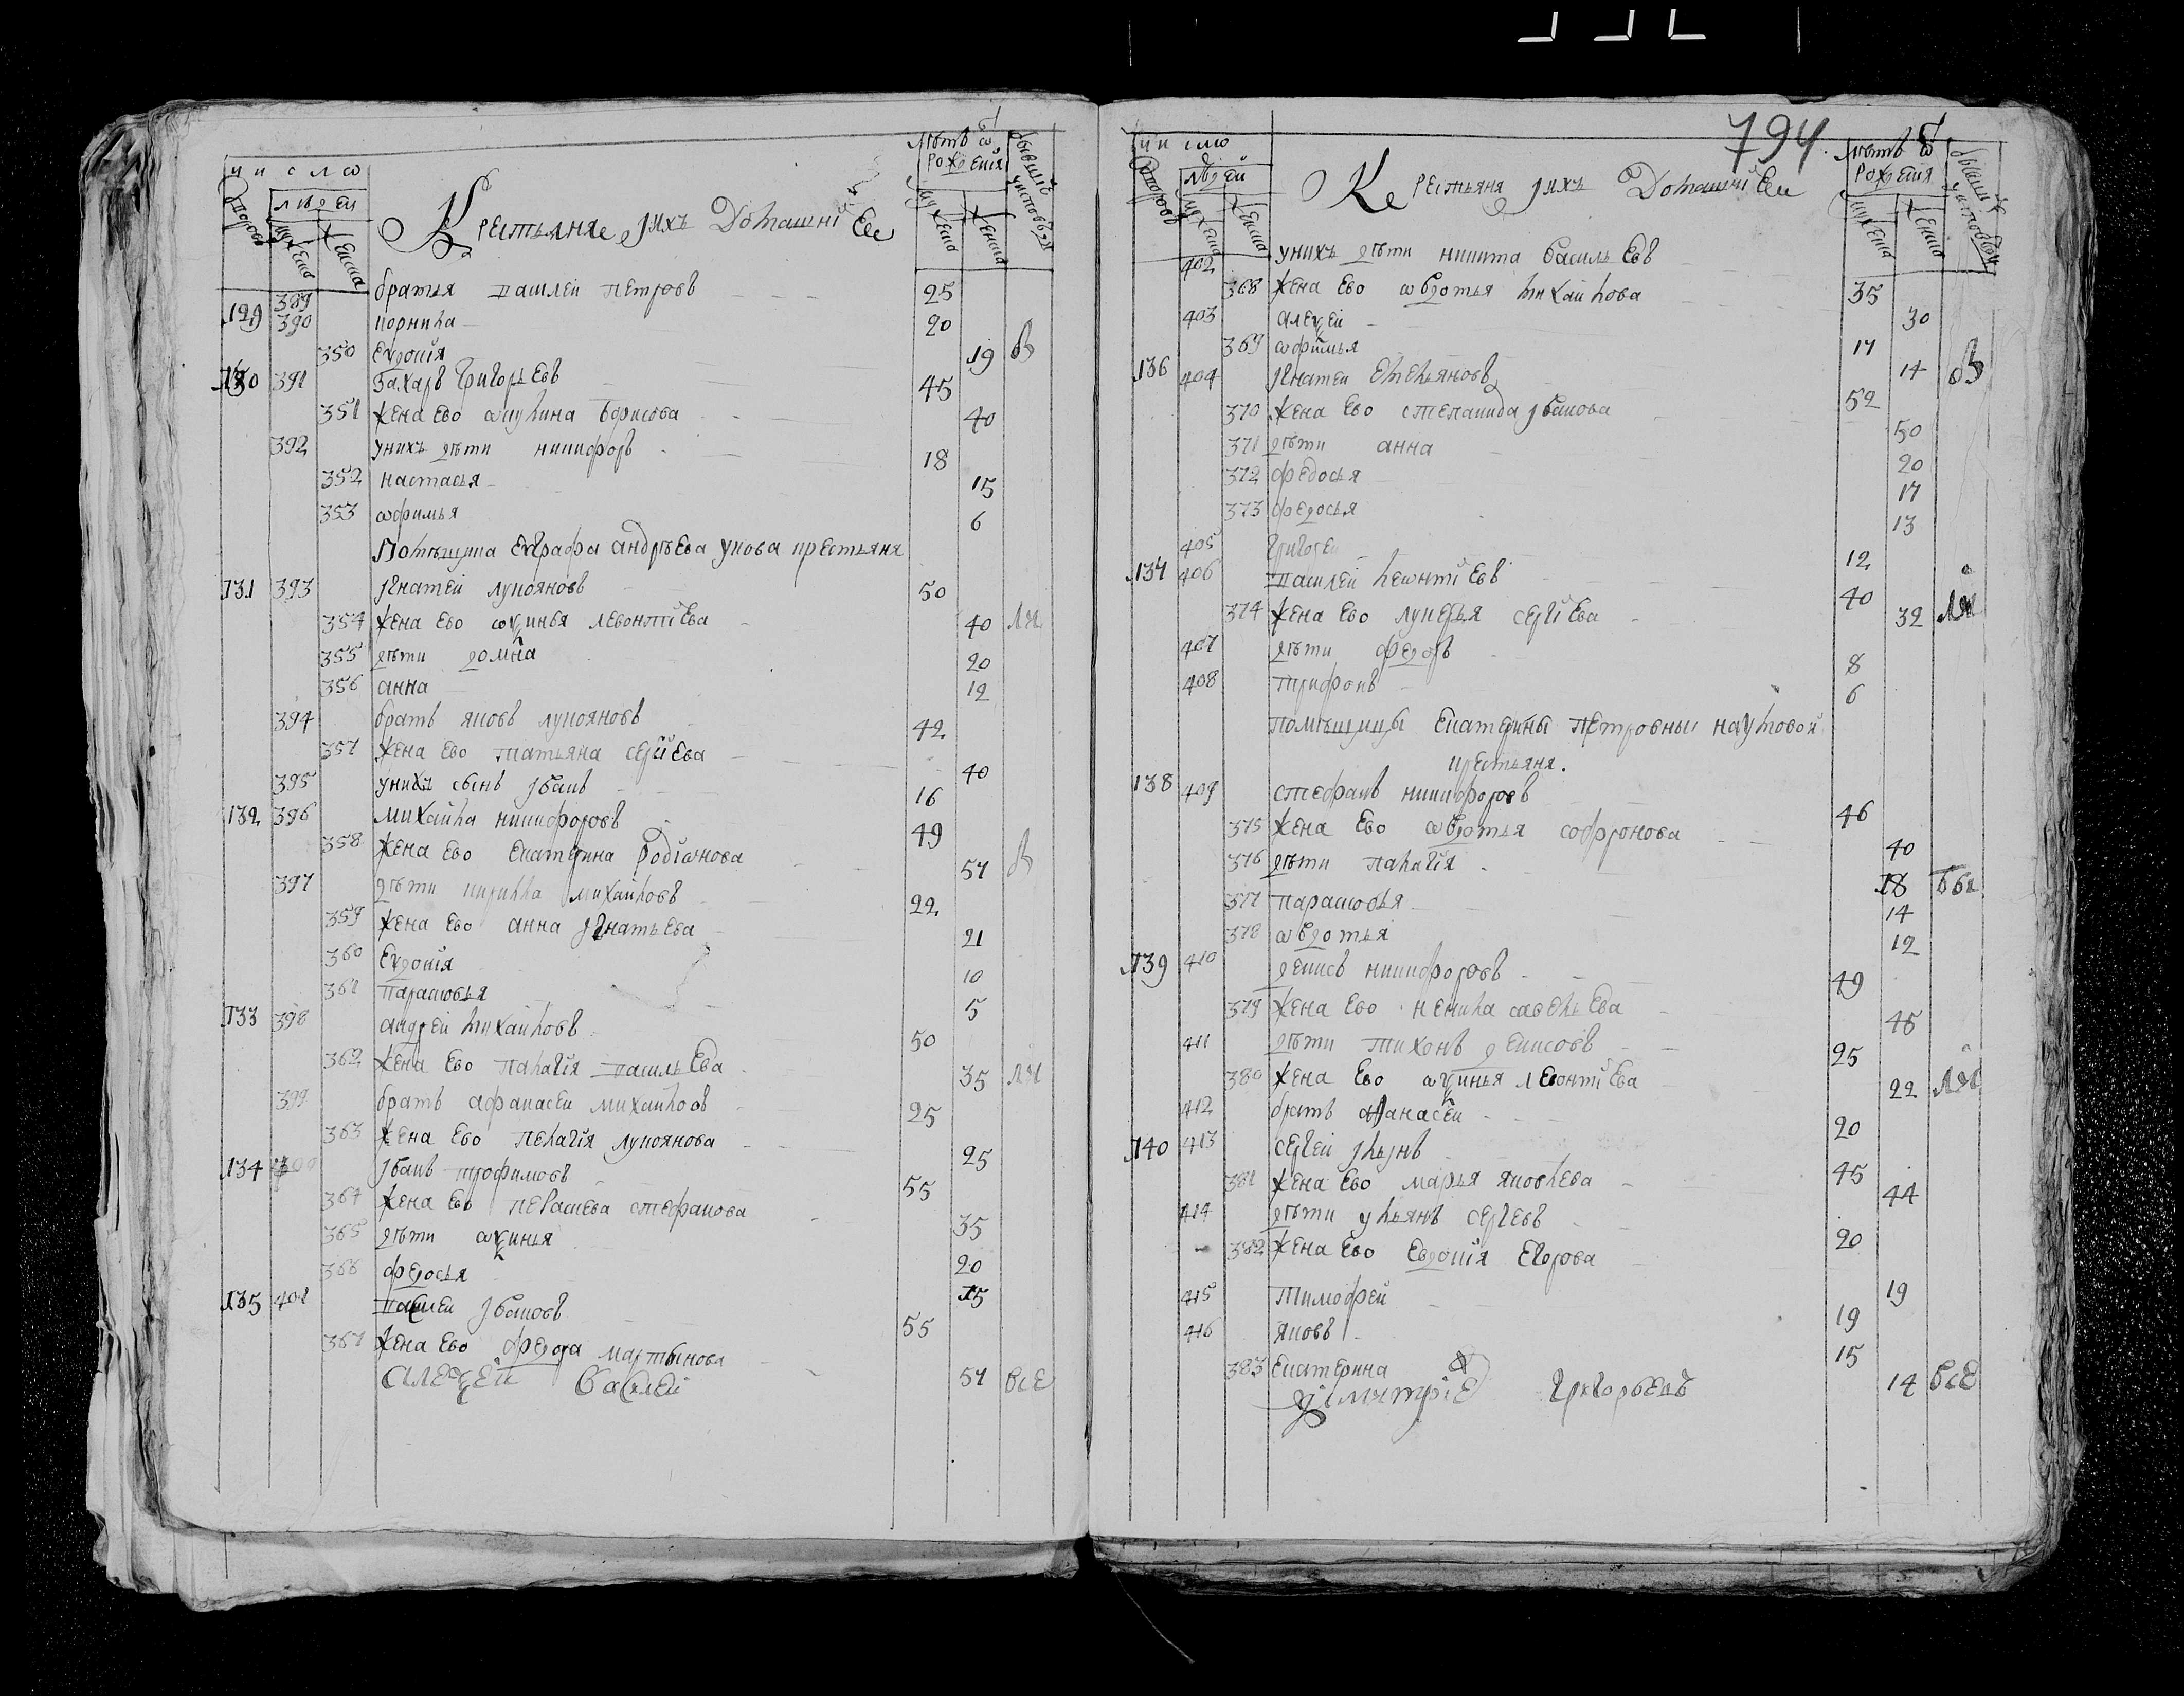 число
дворовъ
людей
мужеска
женска
Крестьяне и ихъ Домашніее
лѣтъ ѿ рожденія
мужеска
женска
бывшіи у исповѣди
389 братья василей петровъ 25
129 390 корнила 20
350 Евдокія 19 в
130 391 Захаръ Григорьевъ 45
351 жена ево акулина борисова 40
392 унихъ дѣти никифоръ 18
352 настасья 15
353 ѡфимья 6
Помѣщика Евграфа андрѣева укова крестьяня
131 393 Игнатей лукояновъ 50
354 жена ево ѡксинья левонтіева 40 ля
355 дѣти домна 20
356 анна 12
394 братъ яковъ лукояновъ 42
357 жена ево татьяна сергіева 40
395 унихъ сынъ Iванъ 16
132 396 михаила никифоровъ 49
358 жена ево Екатерина Родіѡнова 57 в
397 дѣти кирилла михаиловъ 22
359 жена ево анна Iгнатьева 21
360 Евдокія 10
361 парасковья 5
133 398 андрей михаиловъ 50
362 жена ево палагія василь Ева 35 ля
399 братъ афанасей михаиловъ 25
363 жена ево пелагія лукоянова 25
134 400 Iванъ трофимовъ 55
364 жена ево стефанова 35
365 дѣти ѡксинья 20
366 федосья 15
135 401 василей Iвановъ 55
367 жена ево федора мартынова 57 все
алеѯей василей
794
число
дворовъ
людей
мужеска
женска
Крестьяня и ихъ Домашніее
лѣтъ ѿ рожденія
мужеска
женска
бывшіи у исповѣди
402 унихъ дѣти никита василь Евъ 35
368 жена ево ѡвдотья михаилова 30
403 алеѯей 17
369 ѡфимья 14 в
136 404 Iгнатей Емельяновъ 52
370 жена ево степанида Iванова 50
371 дѣти анна 20
372 федосья 17
373 федосья 13
405 григорей 12
137 406 василей леѡнтіевъ 40
374 жена ево лукерья сергіева 32 ля
407 дѣти федоръ 8
408 трифонъ 6
помѣщицы Екатерины петровны наумовой
крестьяня.
138 409 стефанъ никифоровъ 46
375 жена ево ѡвдотья софронова 40
376 дѣти палагія 18 бы
377 парасковья 14
378 ѡвдотья 12
139 410 денисъ никифоровъ 49
379 жена ево ненила савельева 45
411 дѣти тихонъ денисовъ 25
380 жена ево ѡксинья леонтіева 22 ля
412 братъ афанасей 20
140 413 сергей Iльинъ 45
381 жена ево марья яковлева 44
414 дѣти ульянъ сергевъ 20
382 жена ево Евдокія Егорова 19
415 тимофей 19
416 яковъ 15
383 Екатерина 14 все
димитріе григорьевъ